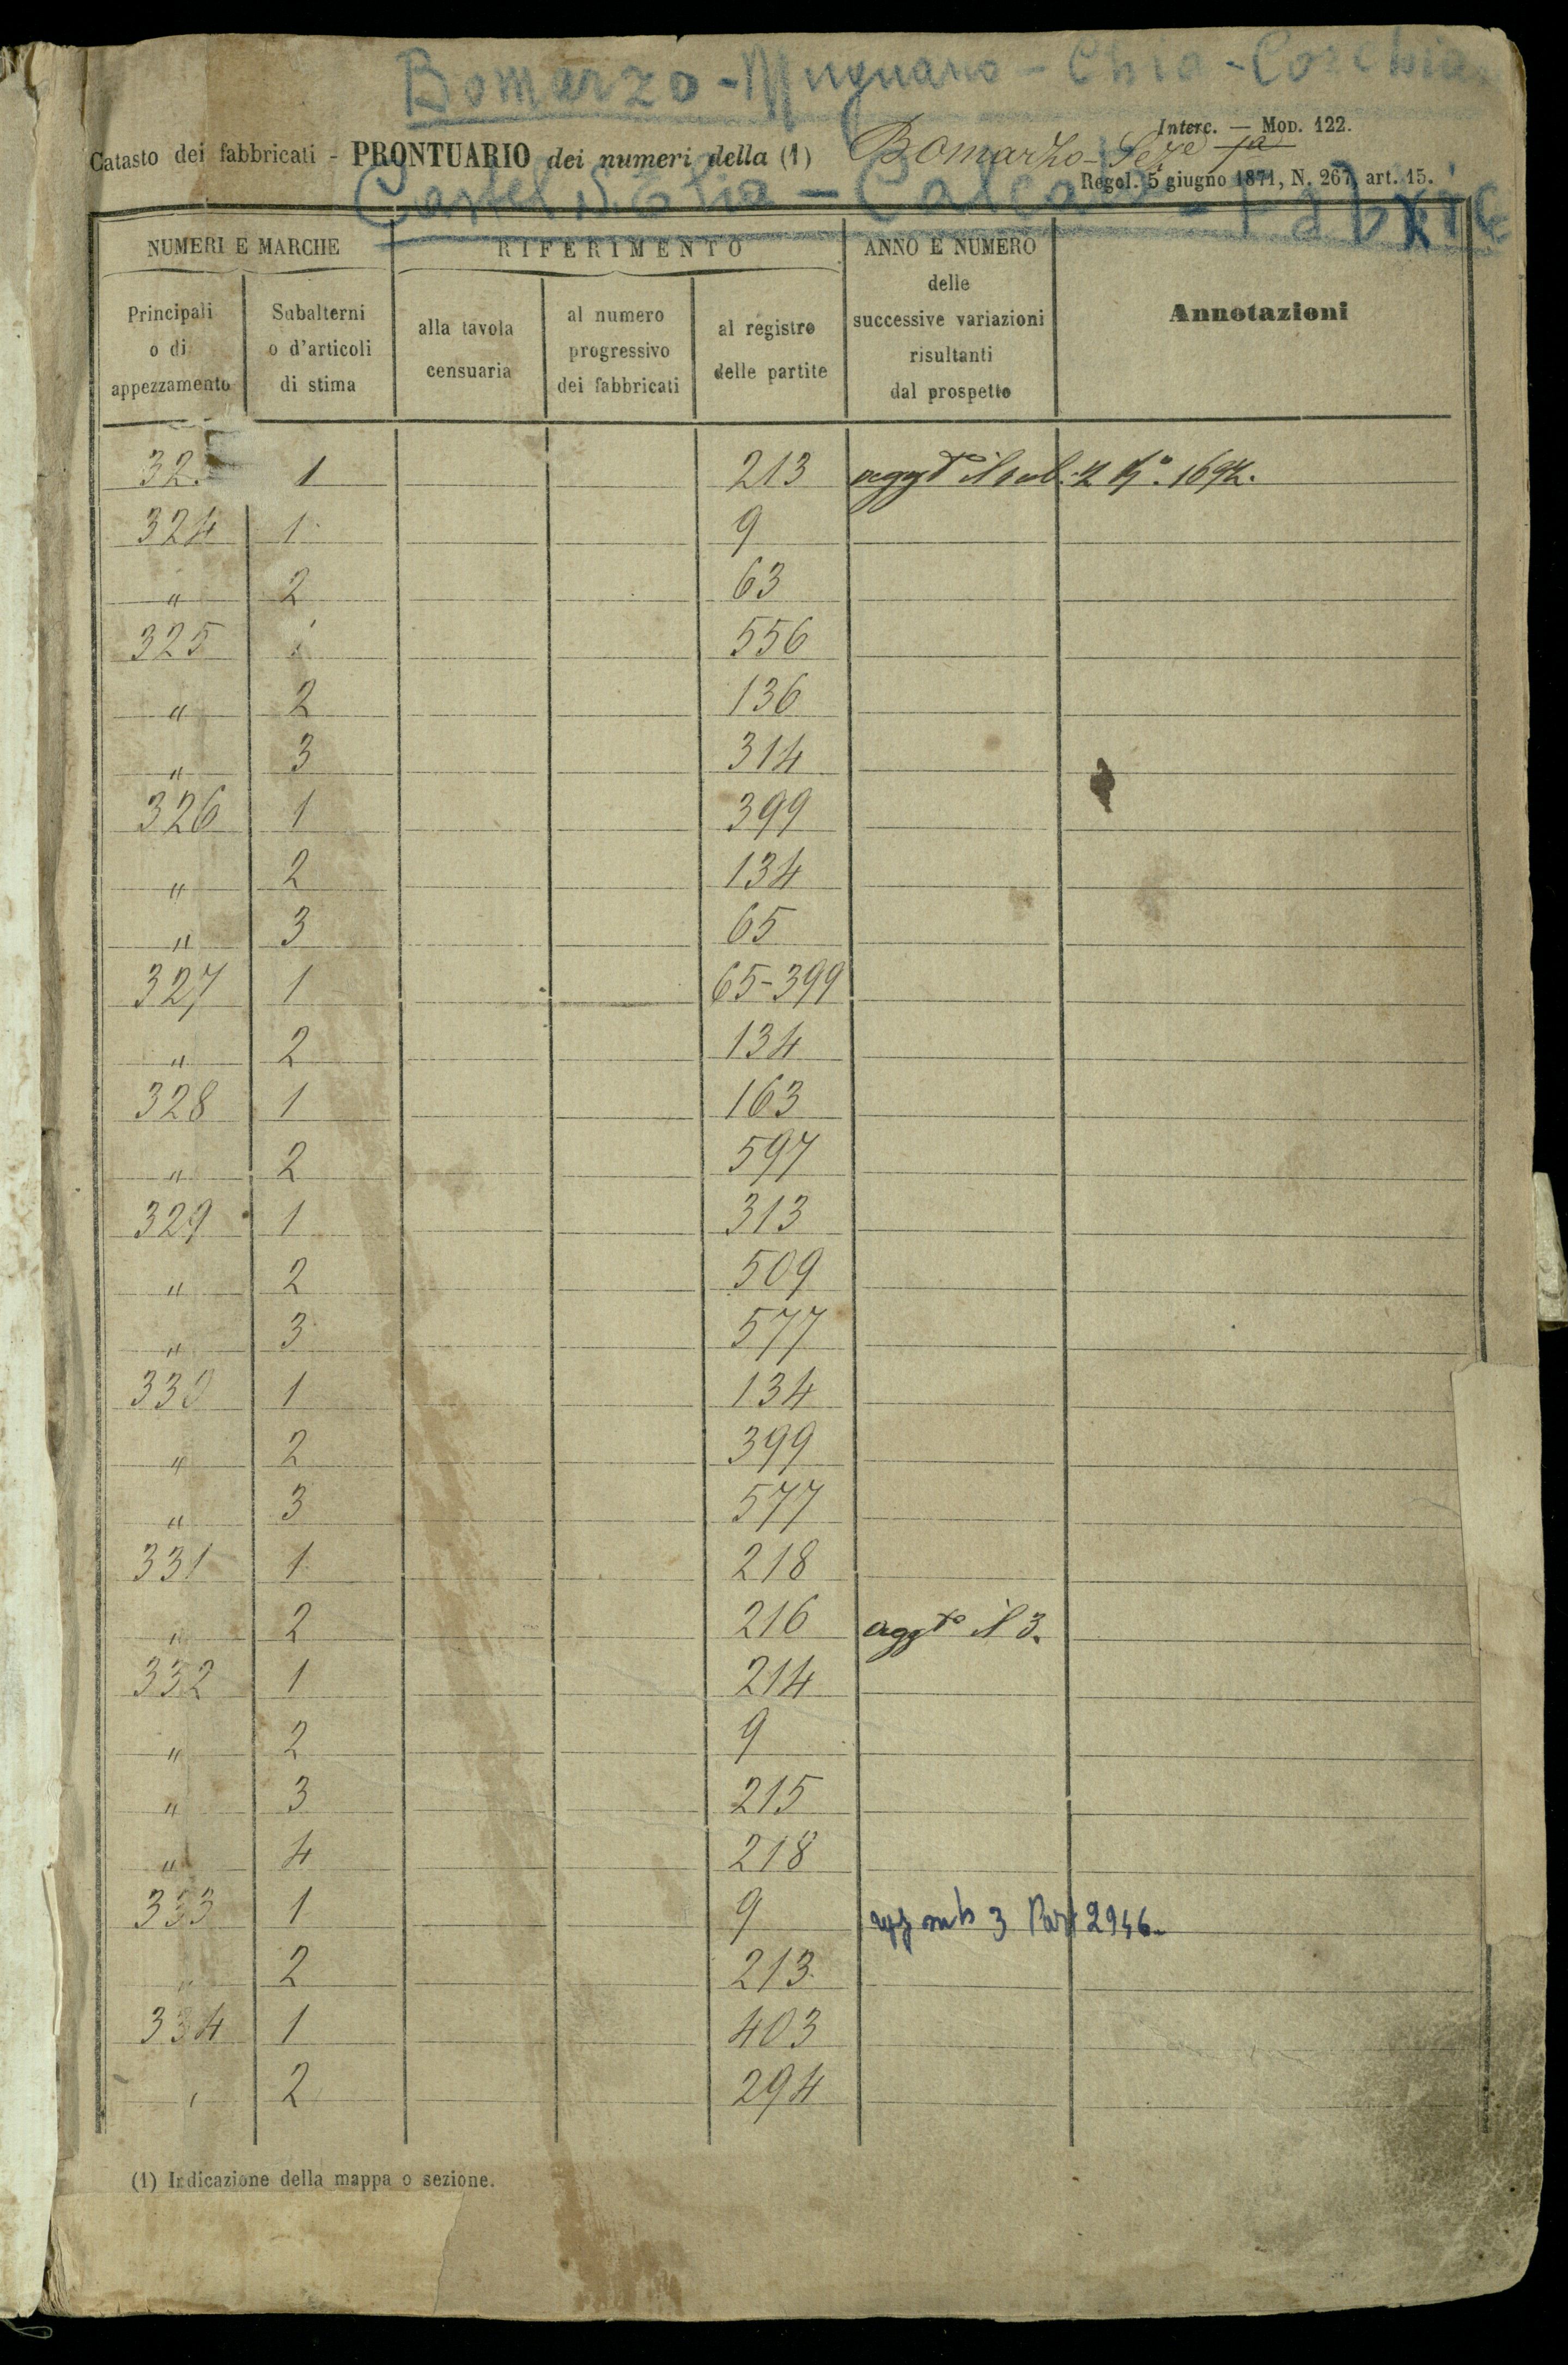 Bomarzo - Mugnano - Chia - Corchia
Interc. — Mod. 122.
Catasto dei fabbricati - PRONTUARIO dei numeri della (1) Bomarzo - Seze
Regol. 5 giugno 1871, N. 267, art. 15.
Castel S. Elia - Calcata - Fabric
NUMERI E MARCHE
RIFERIMENTO
ANNO E NUMERO delle successive variazioni risultanti dal prospetto
Annotazioni
Principali o di appezzamento
Subalterni o d'articoli di stima
alla tavola censuaria
al numero progressivo dei fabbricati
al registro delle partite
32 1 213 aggto il sub. 2 1692.
324 1 9
" 2 63
325 1 556
" 2 136
" 3 314
326 1 399
" 2 134
" 3 65
327 1 65-399
" 2 134
328 1 163
" 2 597
329 1 313
" 2 509
" 3 577
330 1 134
" 2 399
" 3 577
331 1 218
" 2 216 aggto il 3.
332 1 214
" 2 9
" 3 215
" 4 218
333 1 9 sub 3 Part 2946.
" 2 213
334 1 403
" 2 294
(1) Indicazione della mappa o sezione.